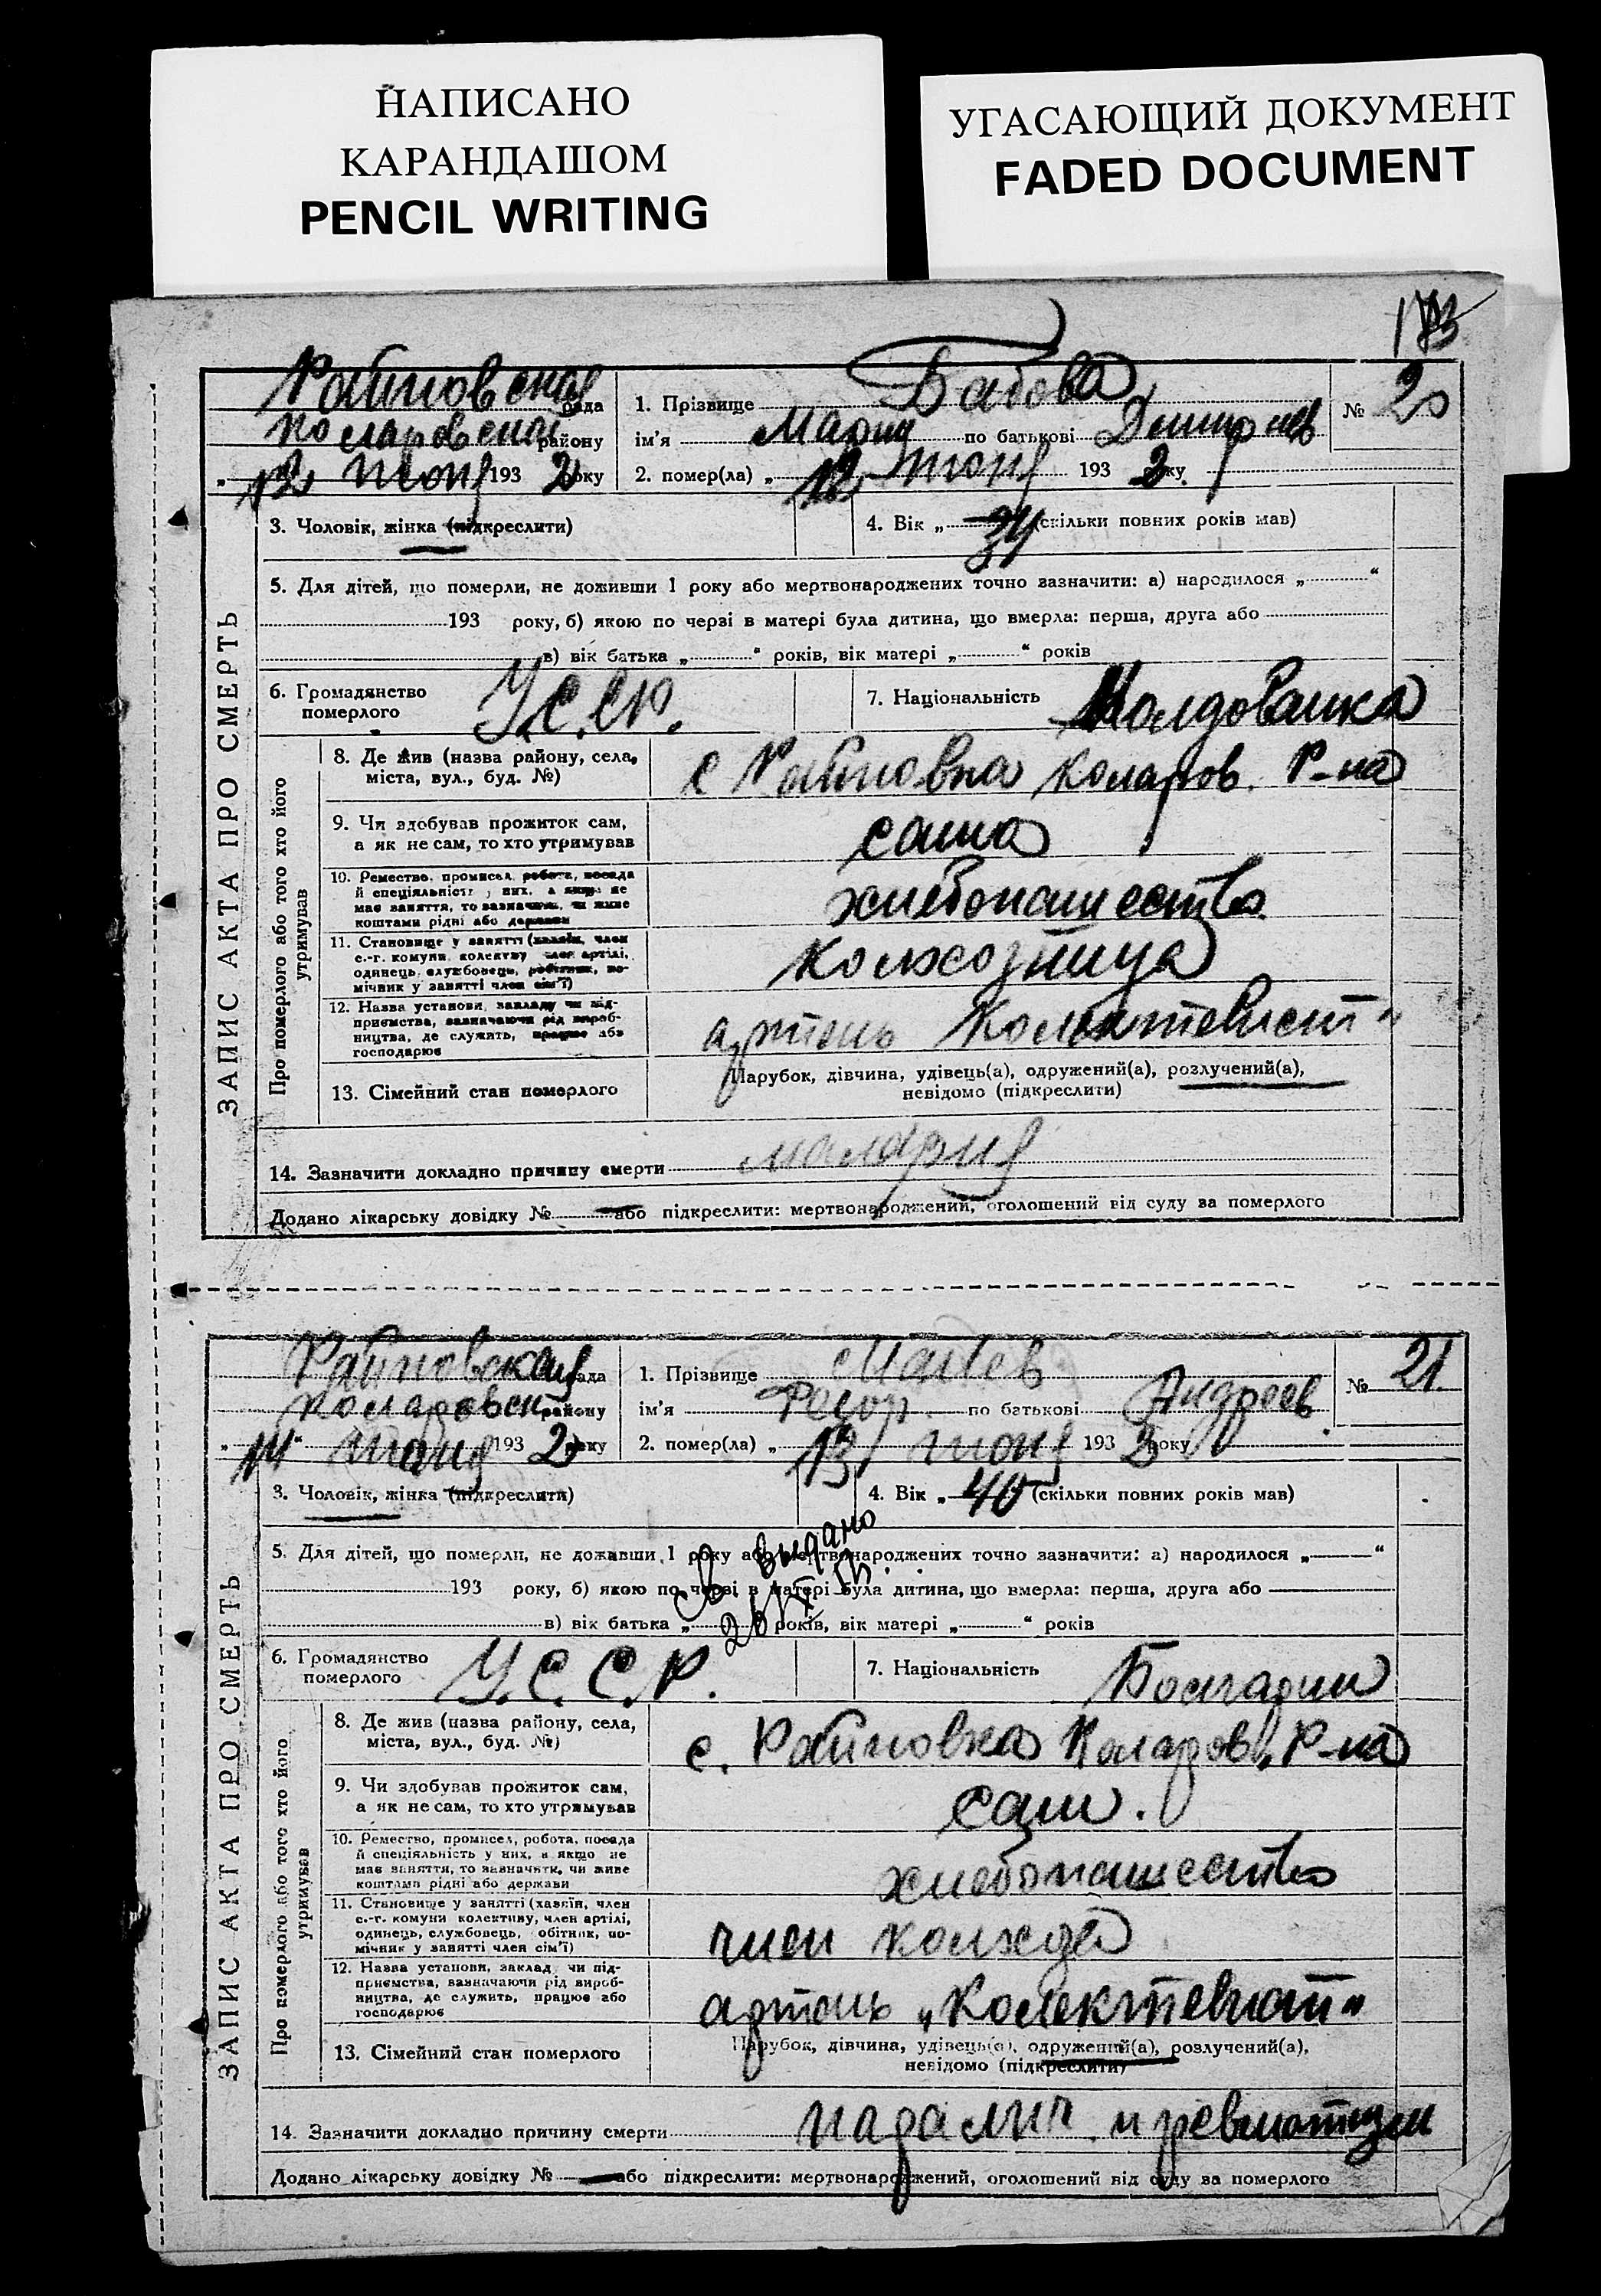 НАПИСАНО
КАРАНДАШОМ
PENCIL WRITING
УГАСАЮЩИЙ ДОКУМЕНТ
FADED DOCUMENT
173
ЗАПИС АКТА ПРО СМЕРТЬ
Райновская рада
Коларовский району
"12" июня 1932 року
1. Прізвище Бабова
ім'я Мария по батькові Дмитриев
2. помер(ла) "12" июня 1932 року
№ 20
3. Чоловік, жінка (підкреслити)
4. Вік "34" (скільки повних років мав)
5. Для дітей, що померли, не доживши 1 року або мертвонароджених точно зазначити: а) народилося „ “
193 року, б) якою по черзі в матері була дитина, що вмерла: перша, друга або
в) вік батька „ “ років, вік матері „ “ років
6. Громадянство померлого У.С.С.Р.
7. Національність Молдованка
Про померлого або того хто його утримував
8. Де жив (назва району, села,
міста, вул., буд. №)
с Райновка Коларов. Р-на
9. Чи здобував прожиток сам,
а як не сам, то хто утримував
сама
10. Ремество, промисел, робота, посада
й спеціяльність у них, а якщо не
має заняття, то зазначити, чи живе
коштами рідні або держави
хлебопашество
11. Становище у занятті (хазяїн, член
с.-г. комуни, колективу, член артілі,
одинець, службовець, робітник, по-
мічник у занятті член сім'ї)
колхозница
12. Назва установи, закладу чи під-
приємства, зазначаючи рід вироб-
ництва, де служить, працює або
господарює
артель Колективист"
13. Сімейний стан померлого
Парубок, дівчина, удівець(а), одружений(а), розлучений(а),
невідомо (підкреслити)
14. Зазначити докладно причину смерти малярия
Додано лікарську довідку № або підкреслити: мертвонароджений, оголошений від суду за померлого
ЗАПИС АКТА ПРО СМЕРТЬ
Райновская рада
Коларовск району
"14" июня 1932 року
1. Прізвище
ім'я Федор по батькові Андреев
2. помер(ла) "13" июня 1932 року
№ 21.
3. Чоловік, жінка (підкреслити)
4. Вік "40" (скільки повних років мав)
5. Для дітей, що померли, не доживши 1 року або мертвонароджених точно зазначити: а) народилося „ “
193 року, б) якою по черзі в матері була дитина, що вмерла: перша, друга або
в) вік батька „ “ років, вік матері „ “ років
св выдано
6. Громадянство померлого У.С.С.Р.
7. Національність Болгарин
Про померлого або того хто його утримував
8. Де жив (назва району, села,
міста, вул., буд. №)
с. Райновка Коларов. Р-на
9. Чи здобував прожиток сам,
а як не сам, то хто утримував
сам.
10. Ремество, промисел, робота, посада
й спеціяльність у них, а якщо не
має заняття, то зазначити, чи живе
коштами рідні або держави
хлебопашество
11. Становище у занятті (хазяїн, член
с.-г. комуни колективу, член артілі,
одинець, службовець, обітник, по-
мічник у занятті член сім'ї)
член
12. Назва установи, заклад чи під-
приємства, зазначаючи рід вироб-
ництва, де служить, працює або
господарює
артель „Колективист"
13. Сімейний стан померлого
Парубок, дівчина, удівець(а), одружений(а), розлучений(а),
невідомо (підкреслити)
14. Зазначити докладно причину смерти и ревматизм
Додано лікарську довідку № або підкреслити: мертвонароджений, оголошений від суду за померлого